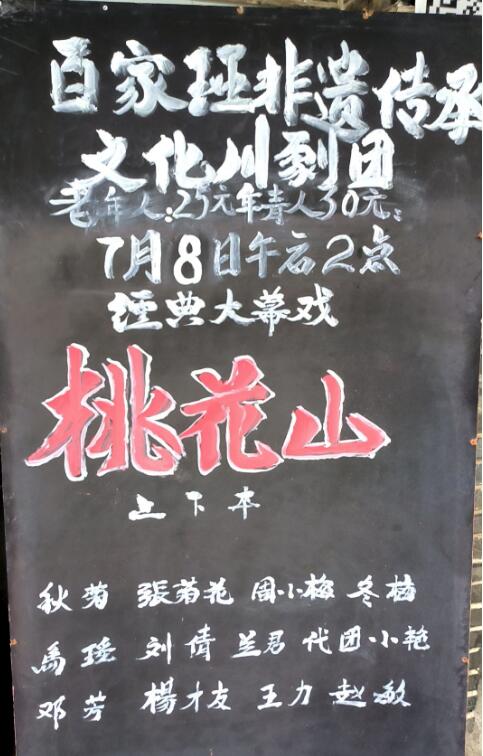 百家班非遗传承
文化川劇团
老年人:25元年青人30元:
7月8日午后2点
经典大幕戏
桃花山
上下本
秋菊 張菊花 周小梅 冬梅
馬瑶 刘倩 兰君 代团小艳
邓芳 楊才友 王力 赵敏